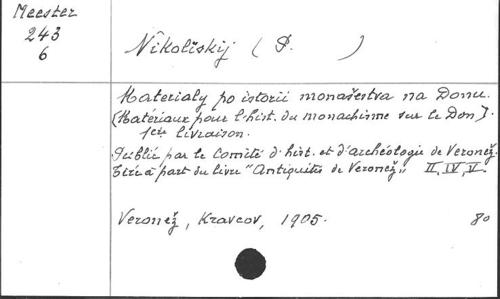 Meester
243
6
Nikol'skij ( P. )
Materialy po istorii monašestva na Donu.
[Matériaux pour l'hist. du monachisme sur le Don].
1ère livraison.
Publié par le Comité d'hist. et d'archéologie de Veronež.
Tiré à part du livre "Antiquités de Veronež" II, IV, V.
Veronež, Kravcov, 1905. 80